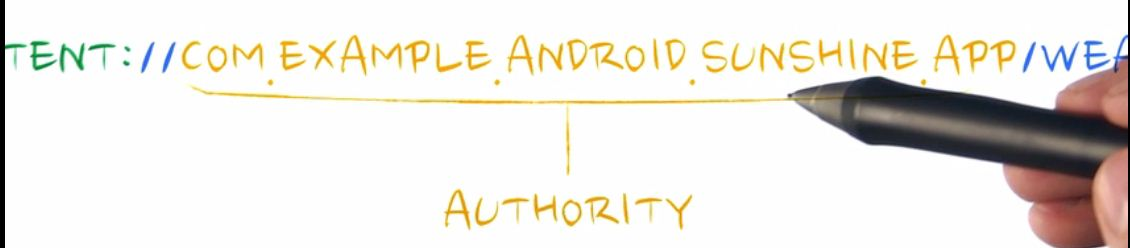 TENT://COM.EXAMPLE.ANDROID.SUNSHINE.APP/WEA
AUTHORITY